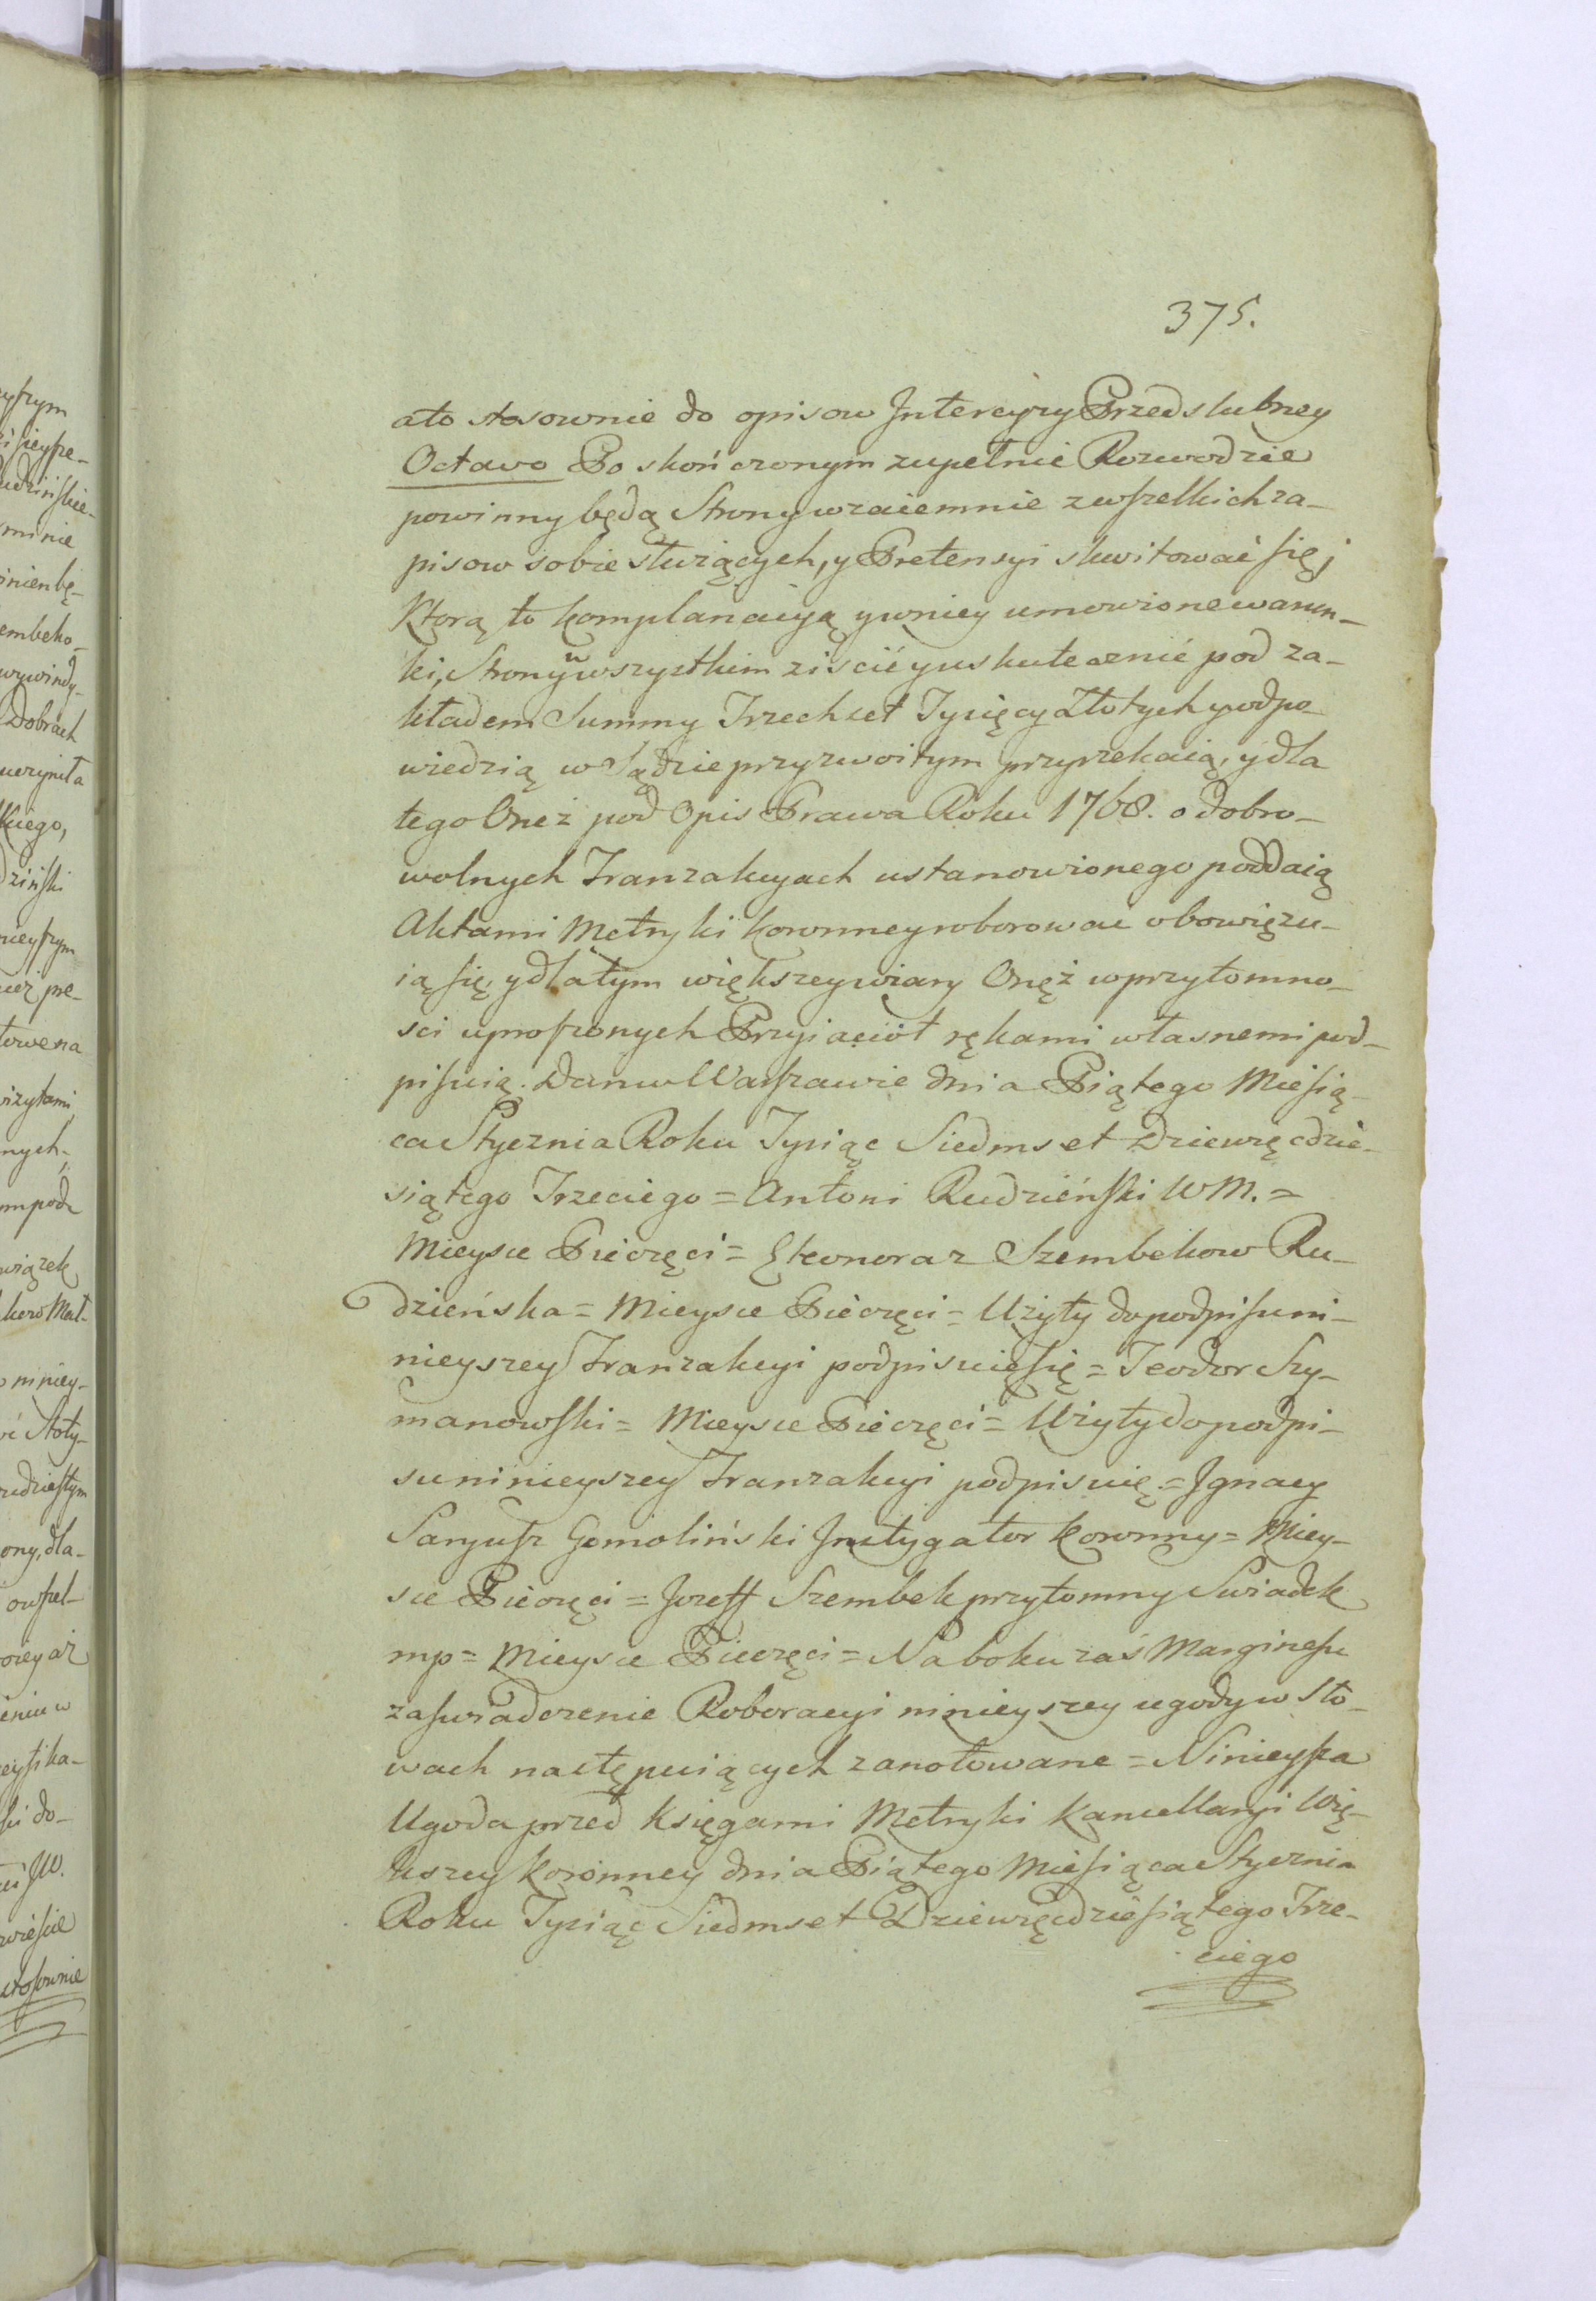 375.
ato stosownie do opisow Intercyzy Przedslubney
Octavo Po skończonym zupełnie Rozwodzie
powinny będą Strony wzaiemnie zewszelkich za-
pisow sobie służących, y Pretensyi skwitować się,
Ktorą to komplanacyą ywniey umowione warun-
ki, Strony w wszystkim ziscić y uskutecznić pod za-
kładem Summy Trzechset Tysięcy Złotych yodpo-
wiedzią w Sądzie przyzwoitym przyrzekaią, y dla
tego Oneż pod Opis Prawa Roku 1768. o dobro-
wolnych Tranzakcyach ustanowionego poddaią
Aktami Metryki Koronney roborować obowięzu-
ią się, y dla tym większey wiary Onęż w przytomno-
sci uproszonych Przyiacioł rękami własnemi pod-
pisuią. Dan w Warszawie dnia Piątego Miesią-
ca Stycznia Roku Tysiąc Siedmset Dziewięćdzie-
siątego Trzeciego = Antoni Rudzieński WM. =
Mieysce Pieczęci = Eleonora z Szembekow Ru-
dzieńska = Mieysce Pieczęci = Użyty do podpisu ni-
nieyszey Tranzakcyi podpisuię się = Teodor Szy-
manowski = Mieysce Pieczęci = Użyty do podpi-
su ninieyszey Tranzakcyi podpisuię = Ignacy
Sariusz Gomoliński Instygator Koronny = Miey-
sce Pieczęci = Jozeff Szembek przytomny Swiadek
mp = Mieysce Pieczęci = Na boku zaś Marginesu
zaswiadczenie Roboracyi ninieyszey ugody w Sło-
wach następuiących zanotowane = Ninieysza
Ugoda przed Księgami Metryki Kancellaryi Wię-
kszey Koronney dnia Piątego Miesiąca Stycznia
Roku Tysiąc Siedmset Dziewięćdziesiątego Trze-
ciego